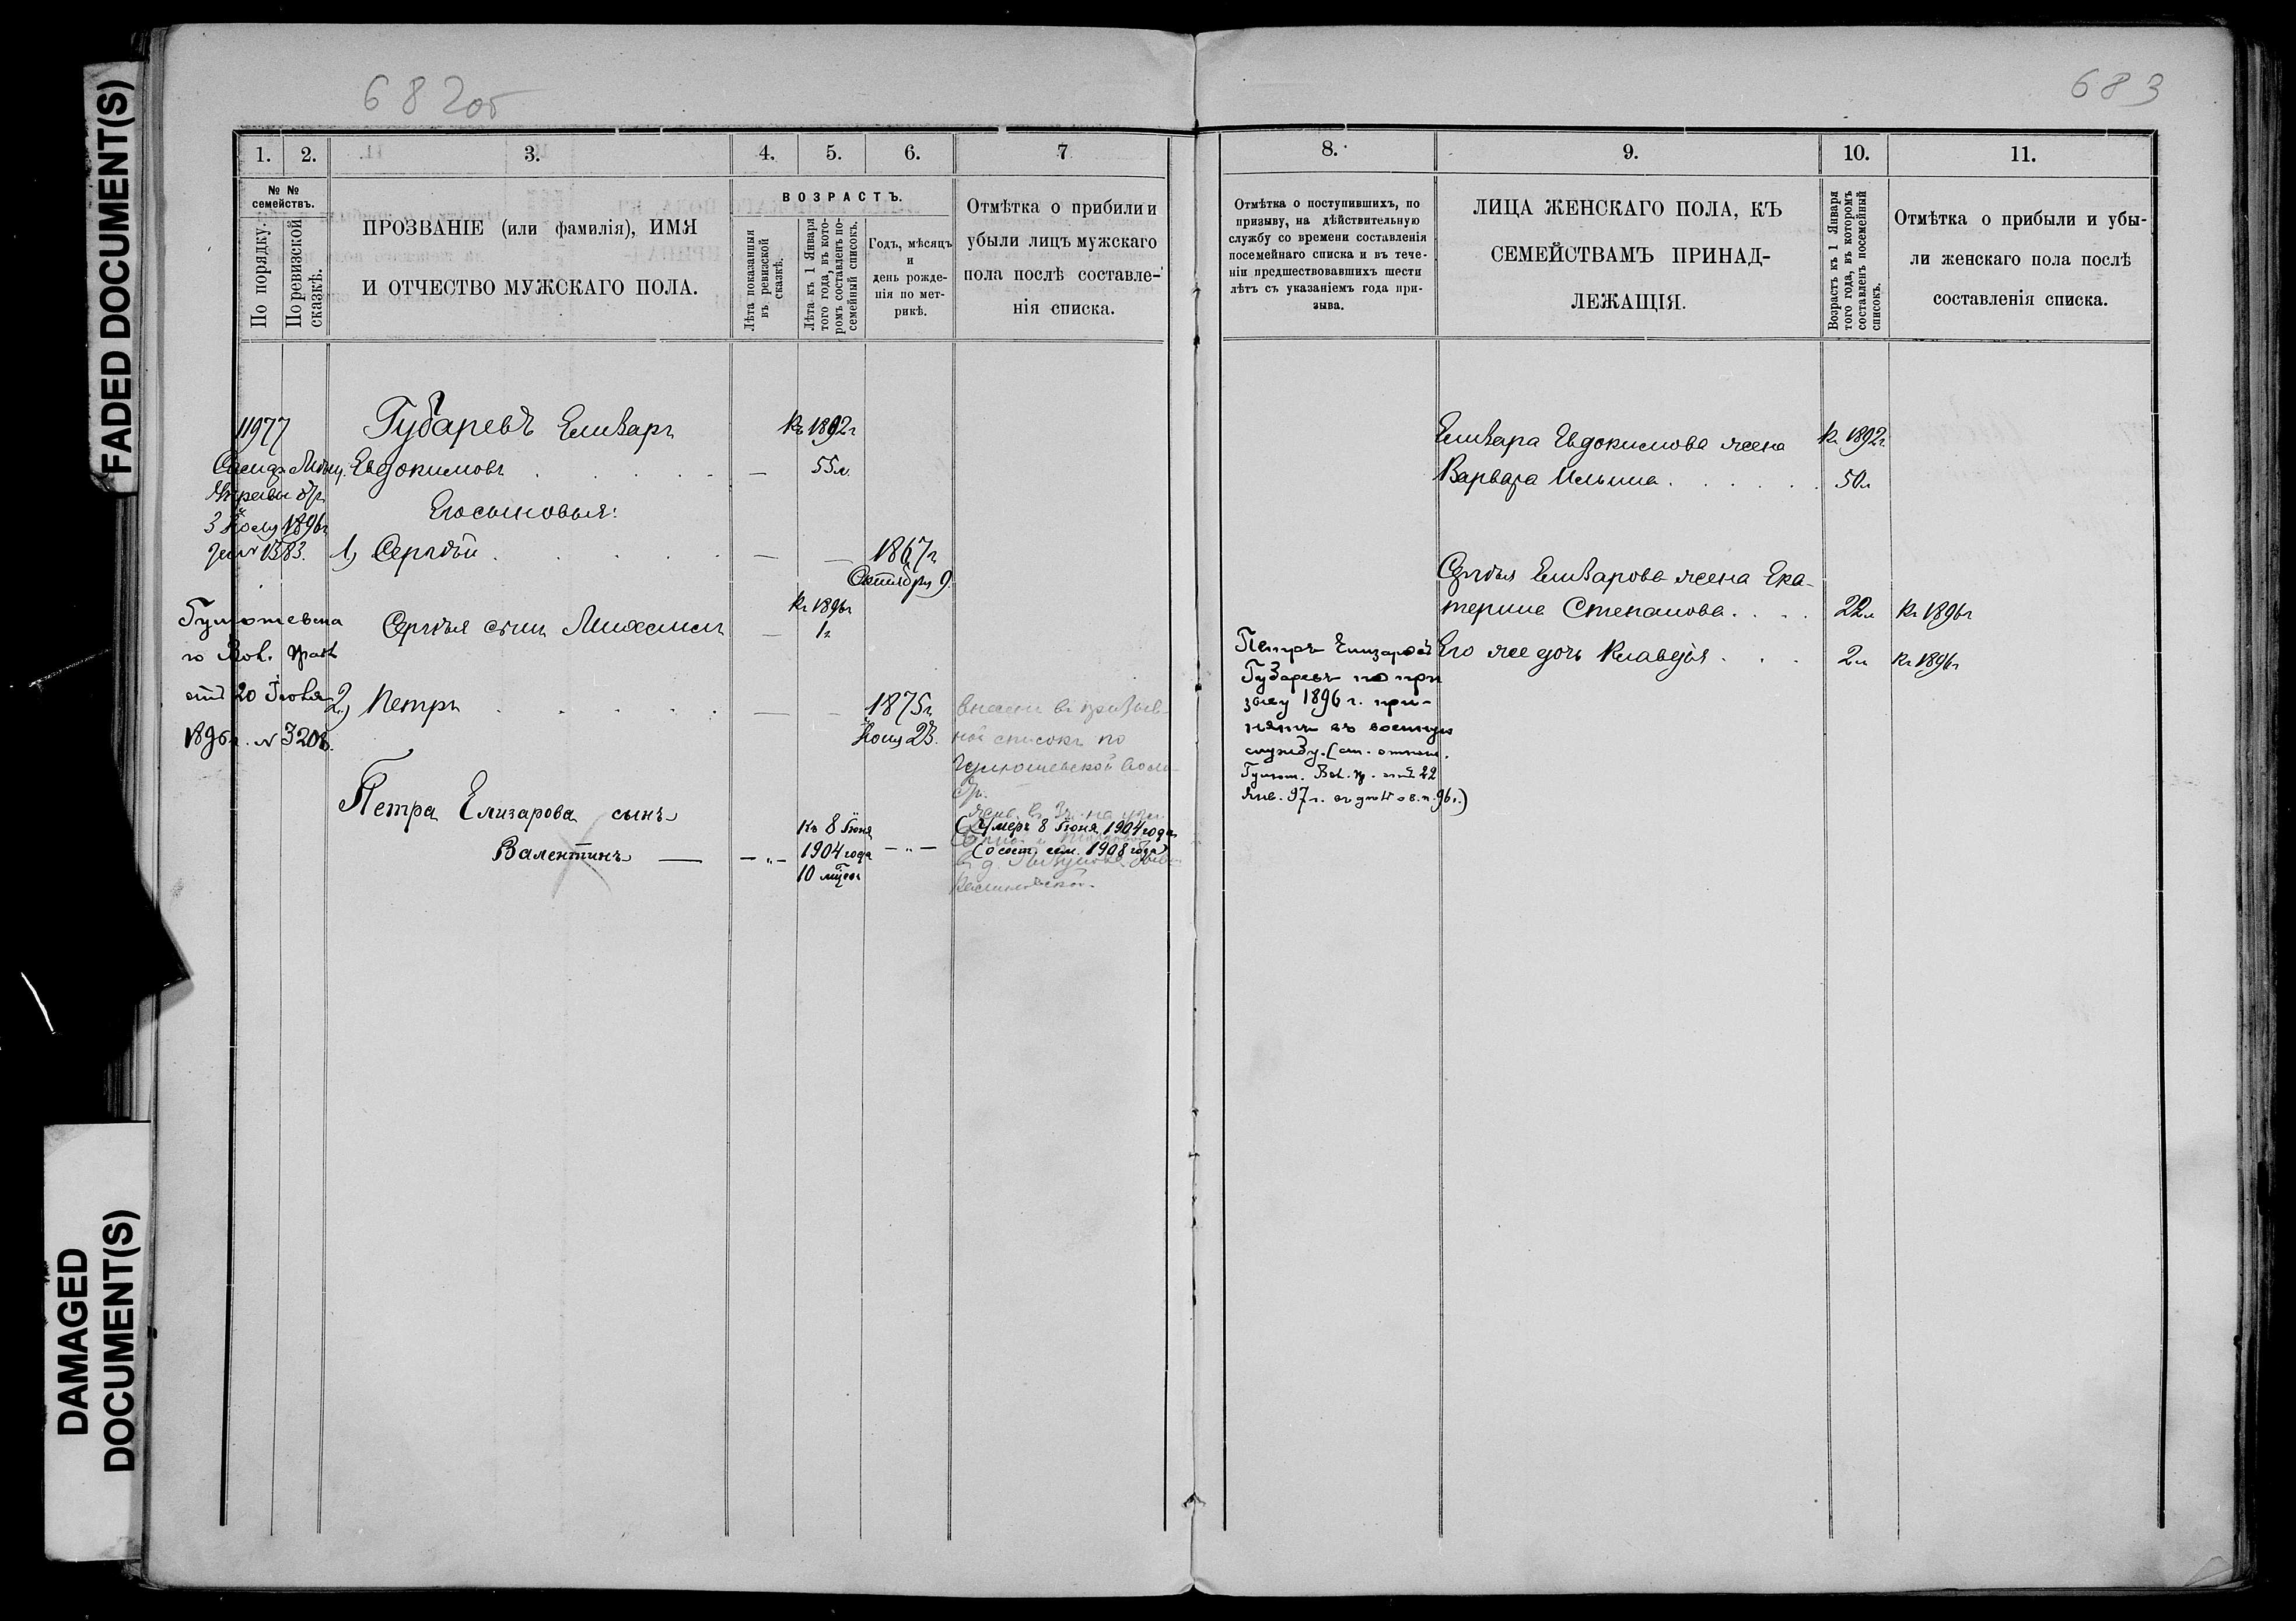 FADED DOCUMENT(S)
DAMAGED
DOCUMENT(S)
682об
1.
2.
3.
4.
5.
6.
7
№ №
семействъ.
По порядку.
По ревизской
сказкѣ.
ПРОЗВАНІЕ (или фамилія), ИМЯ
И ОТЧЕСТВО МУЖСКАГО ПОЛА.
ВОЗРАСТЪ.
Лѣта показанныя
въ ревизской
сказкѣ.
Лѣта къ 1 Января
того года, въ кото-
ромъ составленъ по-
семейный списокъ.
Годъ, мѣсяцъ
и
день рожде-
нія по мет-
рикѣ.
Отмѣтка о прибыли и
убыли лицъ мужскаго
пола послѣ составле-
нія списка.
11977
Губаревъ Елизаръ
Къ 1892г
Евдокимовъ
55л.
Его сыновья:
3 1896г
№ 1383.
1) Сергѣй
1867г
Октября 9.
Къ 1896г
Сергѣя сынъ Михаилъ
1г
го Вол. Прав
отъ 20 Іюня
1896г. № 3208.
2) Петръ
1875г
23.
внесенъ въ призыв-
ной списокъ по
волос
Петра Елизарова сынъ
Валентинъ
Къ 8 Іюня
1904 года
10 мѣсяц
(Умеръ 8 Іюня 1904 года
(о сост. сем. 1908 года)
683
8.
9.
10.
11.
Отмѣтка о поступившихъ, по
призыву, на дѣйствительную
службу со времени составленія
посемейнаго списка и въ тече-
ніи предшествовавшихъ шести
лѣтъ съ указаніемъ года при-
зыва.
ЛИЦА ЖЕНСКАГО ПОЛА, КЪ
СЕМЕЙСТВАМЪ ПРИНАД-
ЛЕЖАЩІЯ.
Возрастъ къ 1 Января
того года, въ которомъ
составленъ посемейный
списокъ.
Отмѣтка о прибыли и убы-
ли женскаго пола послѣ
составленія списка.
Елизара Евдокимова жена
Къ 1892г.
Варвара Ильина
50л
Сергѣя Елизарова жена Ека-
терина Степанова
22л Къ 1896г
Его же дочь Клавдія
2л Къ 1896г
Петръ Елизаровъ
Губаревъ по при
зыву 1896 г. при-
нятъ въ военную
службу. (
Вол. пр. отъ 22
Янв. 97 г.